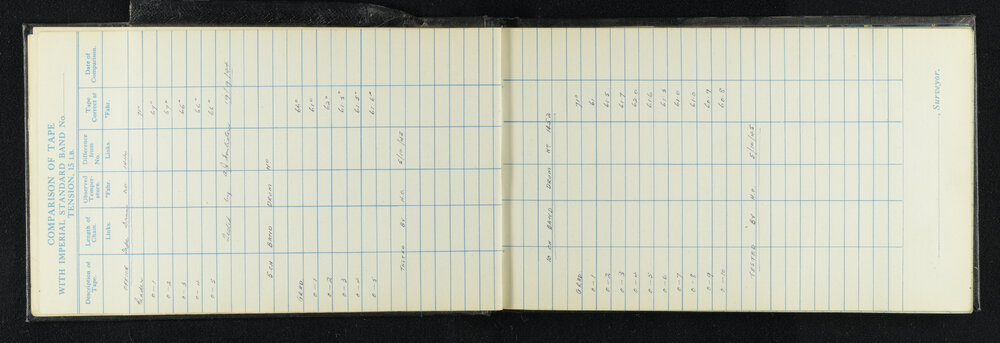 COMPARISON OF TAPE
WITH IMPERIAL STANDARD BAND No.
TENSION, 15 LB.
Description of Tape. Length of Chain. Observed Temperature. Difference from No. Tape Correct at Date of Comparison.
Links. °Fahr. Links. °Fahr.
OFFICE Tape Drum No
Grader 71°
0-1 67°
0-2 67°
0-3 66°
0-4 66°
0-5 66°
Tested by
5 CH BAND DRUM No
GRAD. 66°
0-1 61°
0-2 62°
0-3 61.5°
0-4 61.5°
0-5 61.6°
TESTED BY H.O. 5/10/05
10 CH BAND DRUM No 1652
GRAD 71°
0-1 61
0-2 61.5
0-3 61.7
0-4 62.0
0-5 61.6
0-6 61.3
0-7 61.0
0-8 61.0
0-9 60.9
0-10 60.8
TESTED BY H.O. 5/10/05
Surveyor.